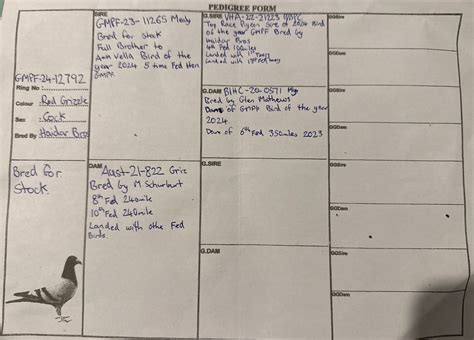 PEDIGREE FORM
GMPF-24-12792
Ring No :
Colour Red Grizzle
Sex Cock
Bred By Haidar Bros
Bred for
Stock
SIRE
GMPF-23-11265 Mealy
Bred for Stock
Full Brother to
Ash Vella Bird of the
year 2024 5 time Fed Hen
GMPF
DAM Aust-21-822 Griz
Bred by M.
8th Fed 240mile
10th Fed 240mile
Landed with othe Fed
Birds.
G.SIRE VHA-22-21223
Top Race Pigeon Sire of 2024 Bird
of the year GMPF Bred by
Haidar Bros
4th Fed 150miles
Landed with 1st
Landed with
G.DAM BIHC-20-0571
Bred by Glen Mathews
Dam of GMPF Bird of the year
2024
Dam of 6th Fed 350miles 2023
G.SIRE
G.DAM
GGSire
GGDam
GGSire
GGDam
GGSire
GGDam
GGSire
GGDam